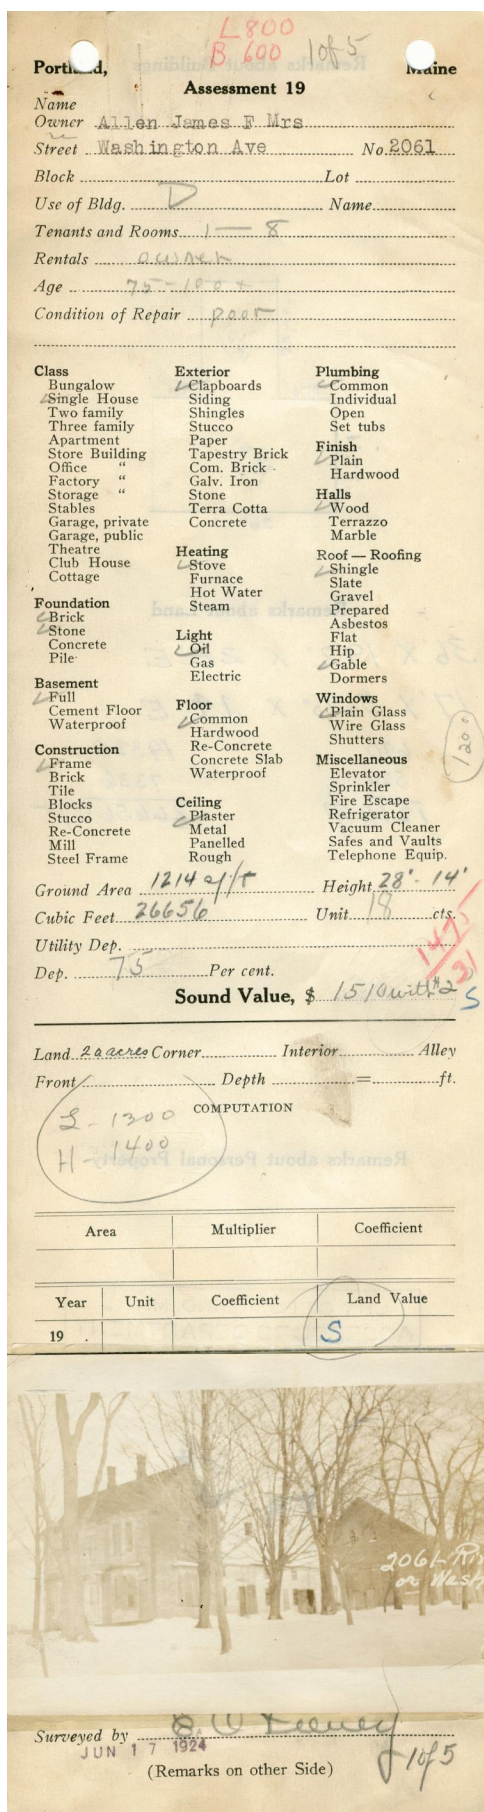 L 800
B 600
1 of 5
Portland, Maine
Assessment 19
Name
Owner Allen James F Mrs
Street Washington Ave No. 2061
Block Lot
Use of Bldg. D Name
Tenants and Rooms 1 — 8
Rentals owner
Age 75-100+
Condition of Repair poor
Class
Bungalow
Single House
Two family
Three family
Apartment
Store Building
Office "
Factory "
Storage "
Stables
Garage, private
Garage, public
Theatre
Club House
Cottage
Foundation
Brick
Stone
Concrete
Pile
Basement
Full
Cement Floor
Waterproof
Construction
Frame
Brick
Tile
Blocks
Stucco
Re-Concrete
Mill
Steel Frame
Exterior
Clapboards
Siding
Shingles
Stucco
Paper
Tapestry Brick
Com. Brick
Galv. Iron
Stone
Terra Cotta
Concrete
Heating
Stove
Furnace
Hot Water
Steam
Light
Oil
Gas
Electric
Floor
Common
Hardwood
Re-Concrete
Concrete Slab
Waterproof
Ceiling
Plaster
Metal
Panelled
Rough
Plumbing
Common
Individual
Open
Set tubs
Finish
Plain
Hardwood
Halls
Wood
Terrazzo
Marble
Roof — Roofing
Shingle
Slate
Gravel
Prepared
Asbestos
Flat
Hip
Gable
Dormers
Windows
Plain Glass
Wire Glass
Shutters
Miscellaneous
Elevator
Sprinkler
Fire Escape
Refrigerator
Vacuum Cleaner
Safes and Vaults
Telephone Equip.
1200
Ground Area 1214 Height 28' - 14'
Cubic Feet 26656 Unit 18 cts.
Utility Dep.
1475
31
Dep. 75 Per cent.
Sound Value, $ 1510 with #2
S
Land 20 acres Corner Interior Alley
Front Depth = ft.
COMPUTATION
L - 1300
H - 1400
Area Multiplier Coefficient
Year Unit Coefficient Land Value
19 . S
2061-
or Wash
Surveyed by
JUN 17 1924
1 of 5
(Remarks on other Side)